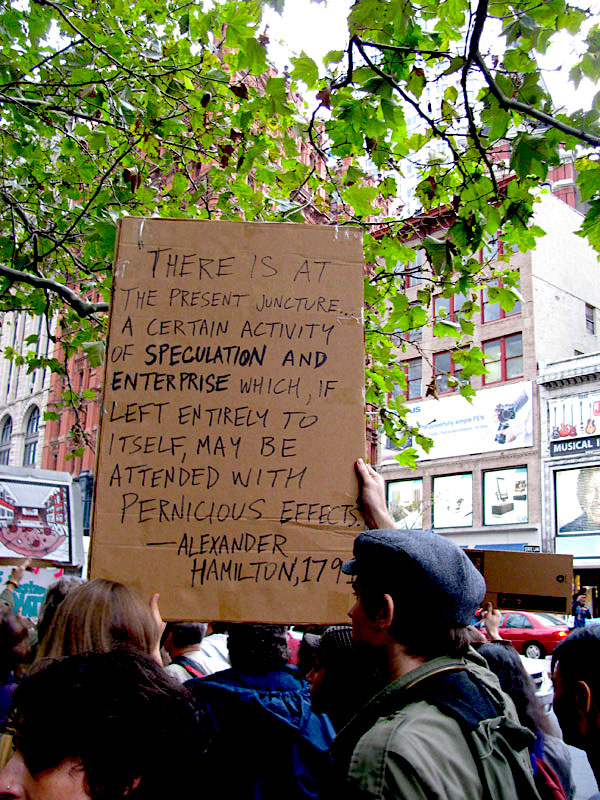 "THERE IS AT
THE PRESENT JUNCTURE...
A CERTAIN ACTIVITY
OF SPECULATION AND
ENTERPRISE WHICH, IF
LEFT ENTIRELY TO
ITSELF, MAY BE
ATTENDED WITH
PERNICIOUS EFFECTS.
—ALEXANDER
HAMILTON, 179
MUSICAL I